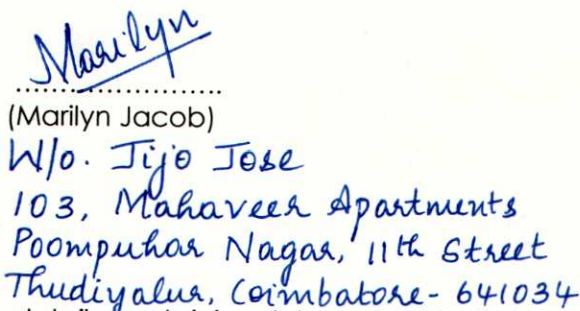 Marilyn
........................
(Marilyn Jacob)
W/o. Jijo Jose
103, Mahaveer Apartments
Poompuhar Nagar, 11th Street
Thudiyalur, Coimbatore - 641034